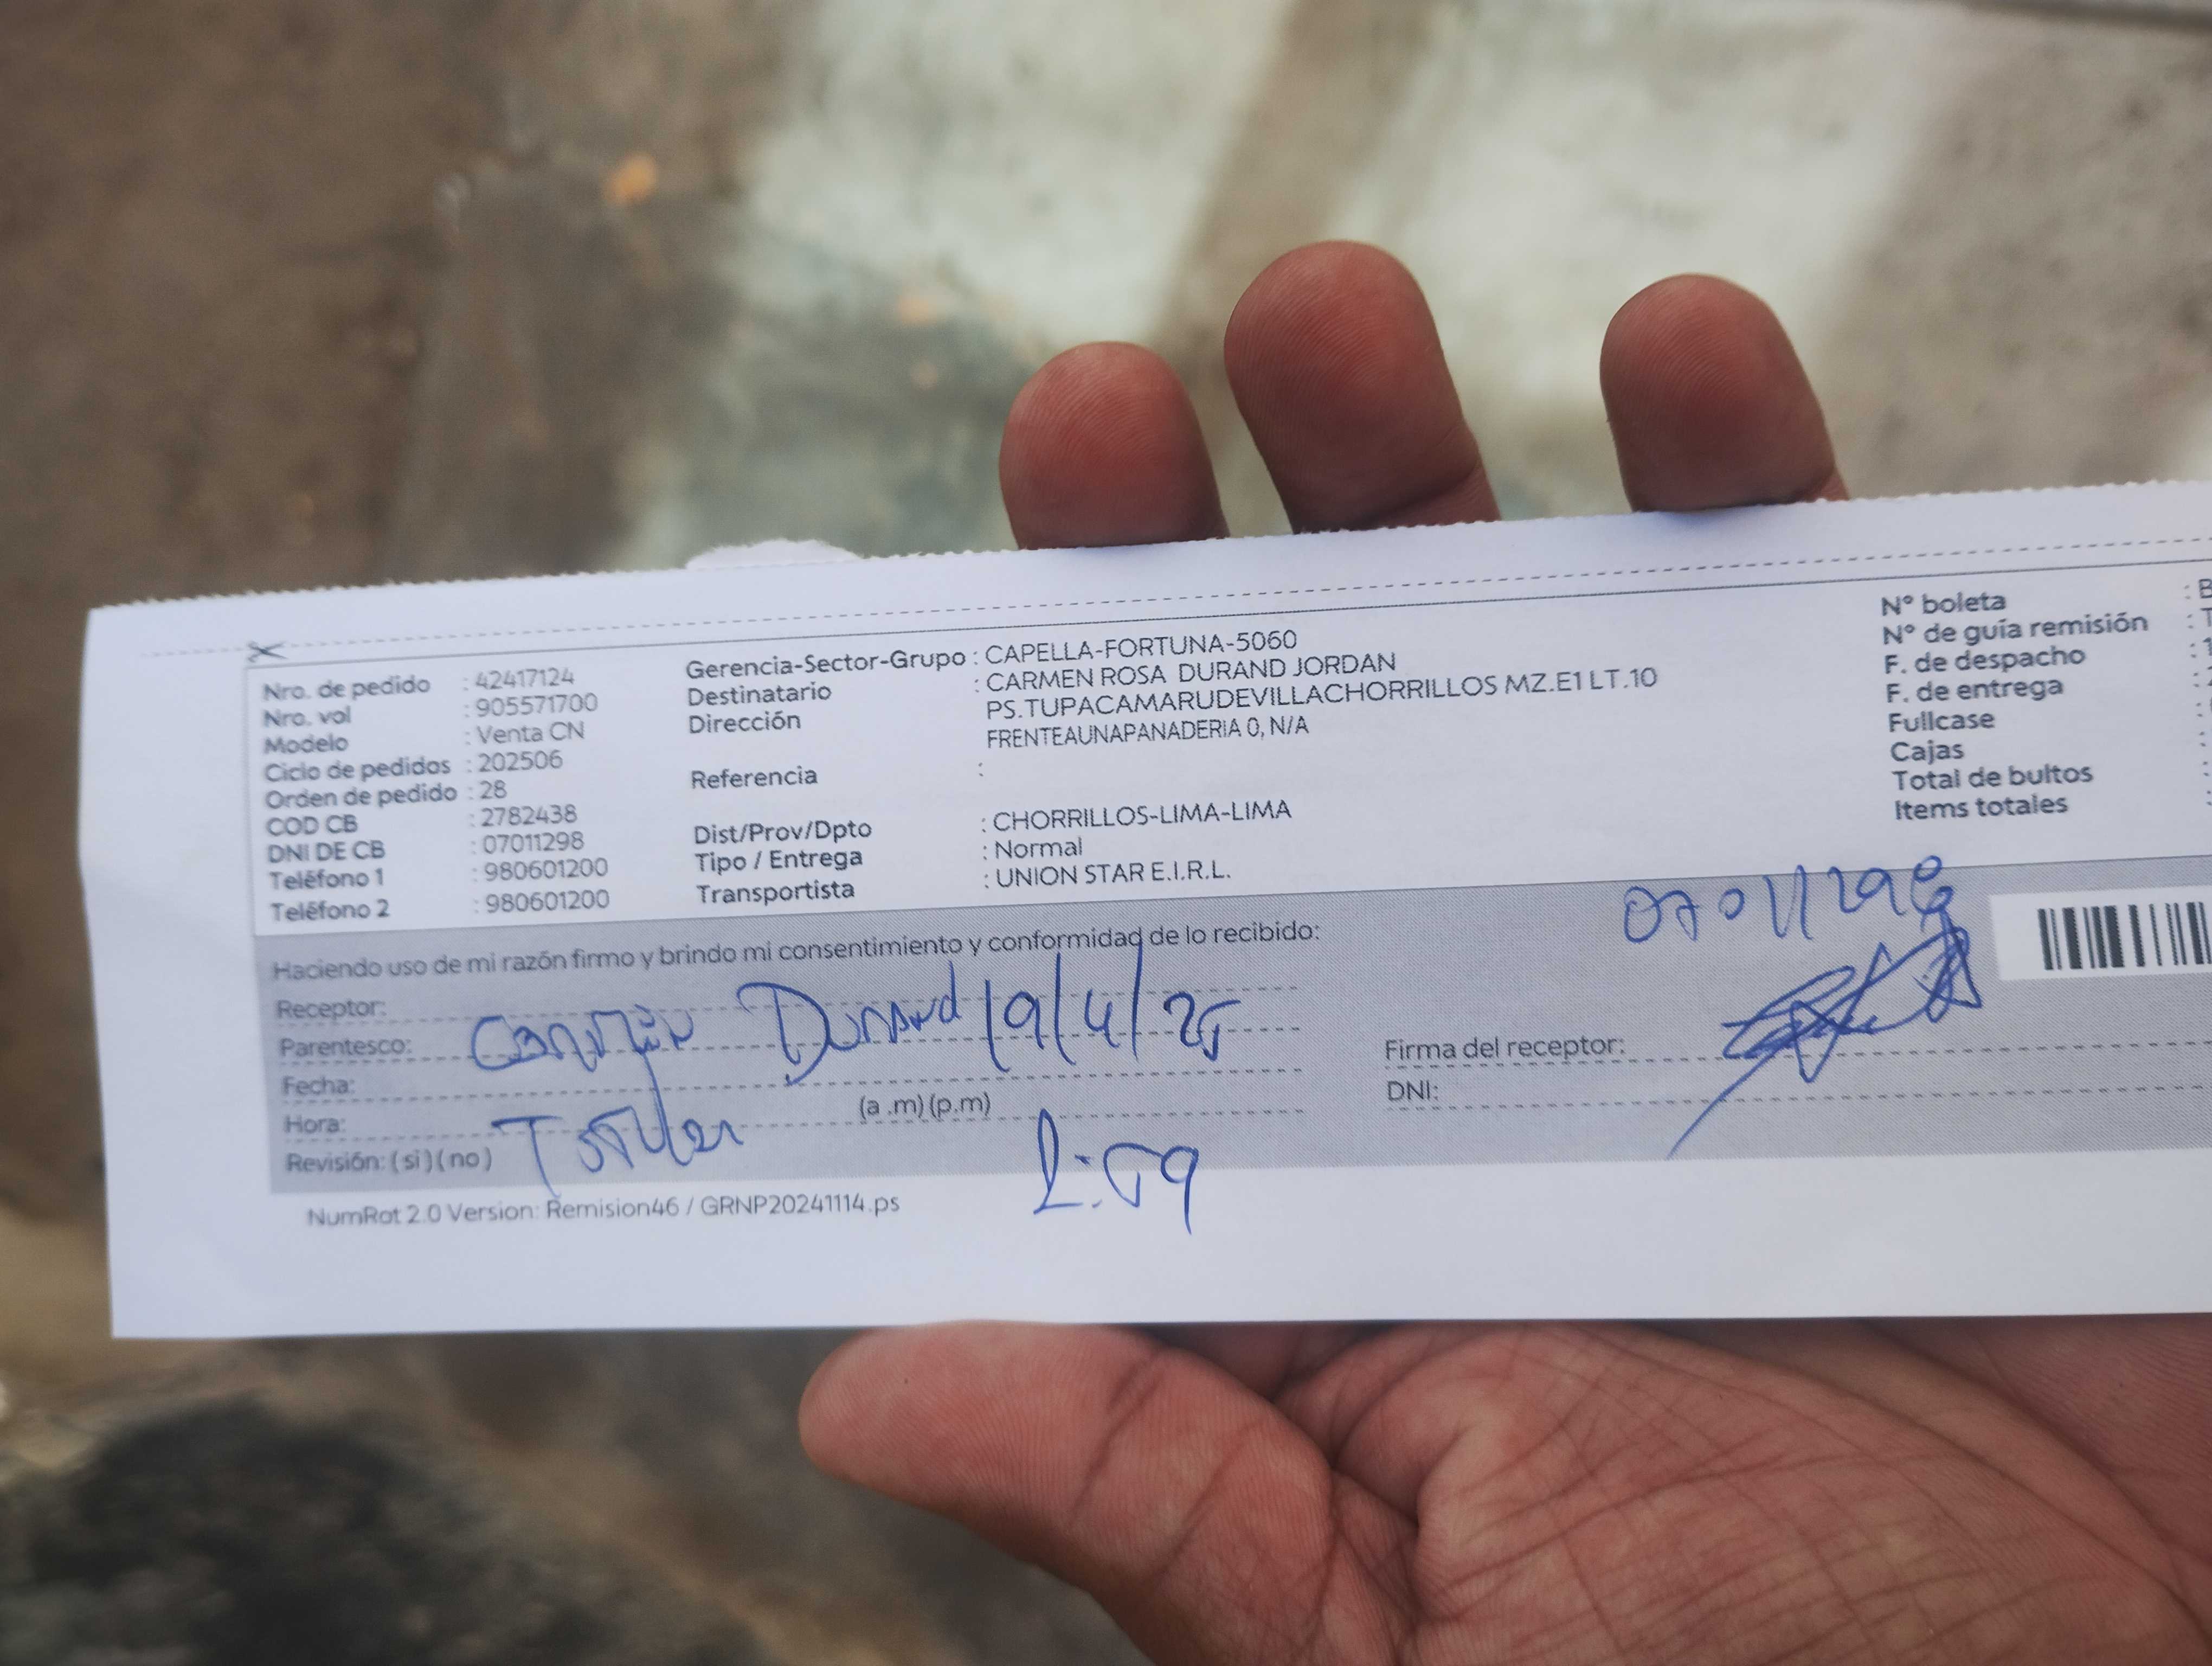 Nro. de pedido : 42417124
Nro. vol : 905571700
Modelo : Venta CN
Ciclo de pedidos : 202506
Orden de pedido : 28
COD CB : 2782438
DNI DE CB : 07011298
Teléfono 1 : 980601200
Teléfono 2 : 980601200
Gerencia-Sector-Grupo : CAPELLA-FORTUNA-5060
Destinatario : CARMEN ROSA DURAND JORDAN
Dirección PS.TUPACAMARUDEVILLACHORRILLOS MZ.E1 LT.10
FRENTEAUNAPANADERIA 0, N/A
Referencia :
Dist/Prov/Dpto : CHORRILLOS-LIMA-LIMA
Tipo / Entrega : Normal
Transportista : UNION STAR E.I.R.L.
N° boleta : B
N° de guía remisión : T
F. de despacho : 1
F. de entrega :
Fullcase :
Cajas :
Total de bultos :
Items totales :
Haciendo uso de mi razón firmo y brindo mi consentimiento y conformidad de lo recibido:
07011298
Receptor:
Durand 19/4/25
Parentesco:
Fecha:
Hora: (a .m) (p.m)
Revisión: ( si ) ( no )
Firma del receptor:
DNI:
:59
NumRot 2.0 Version: Remision46 / GRNP20241114.ps